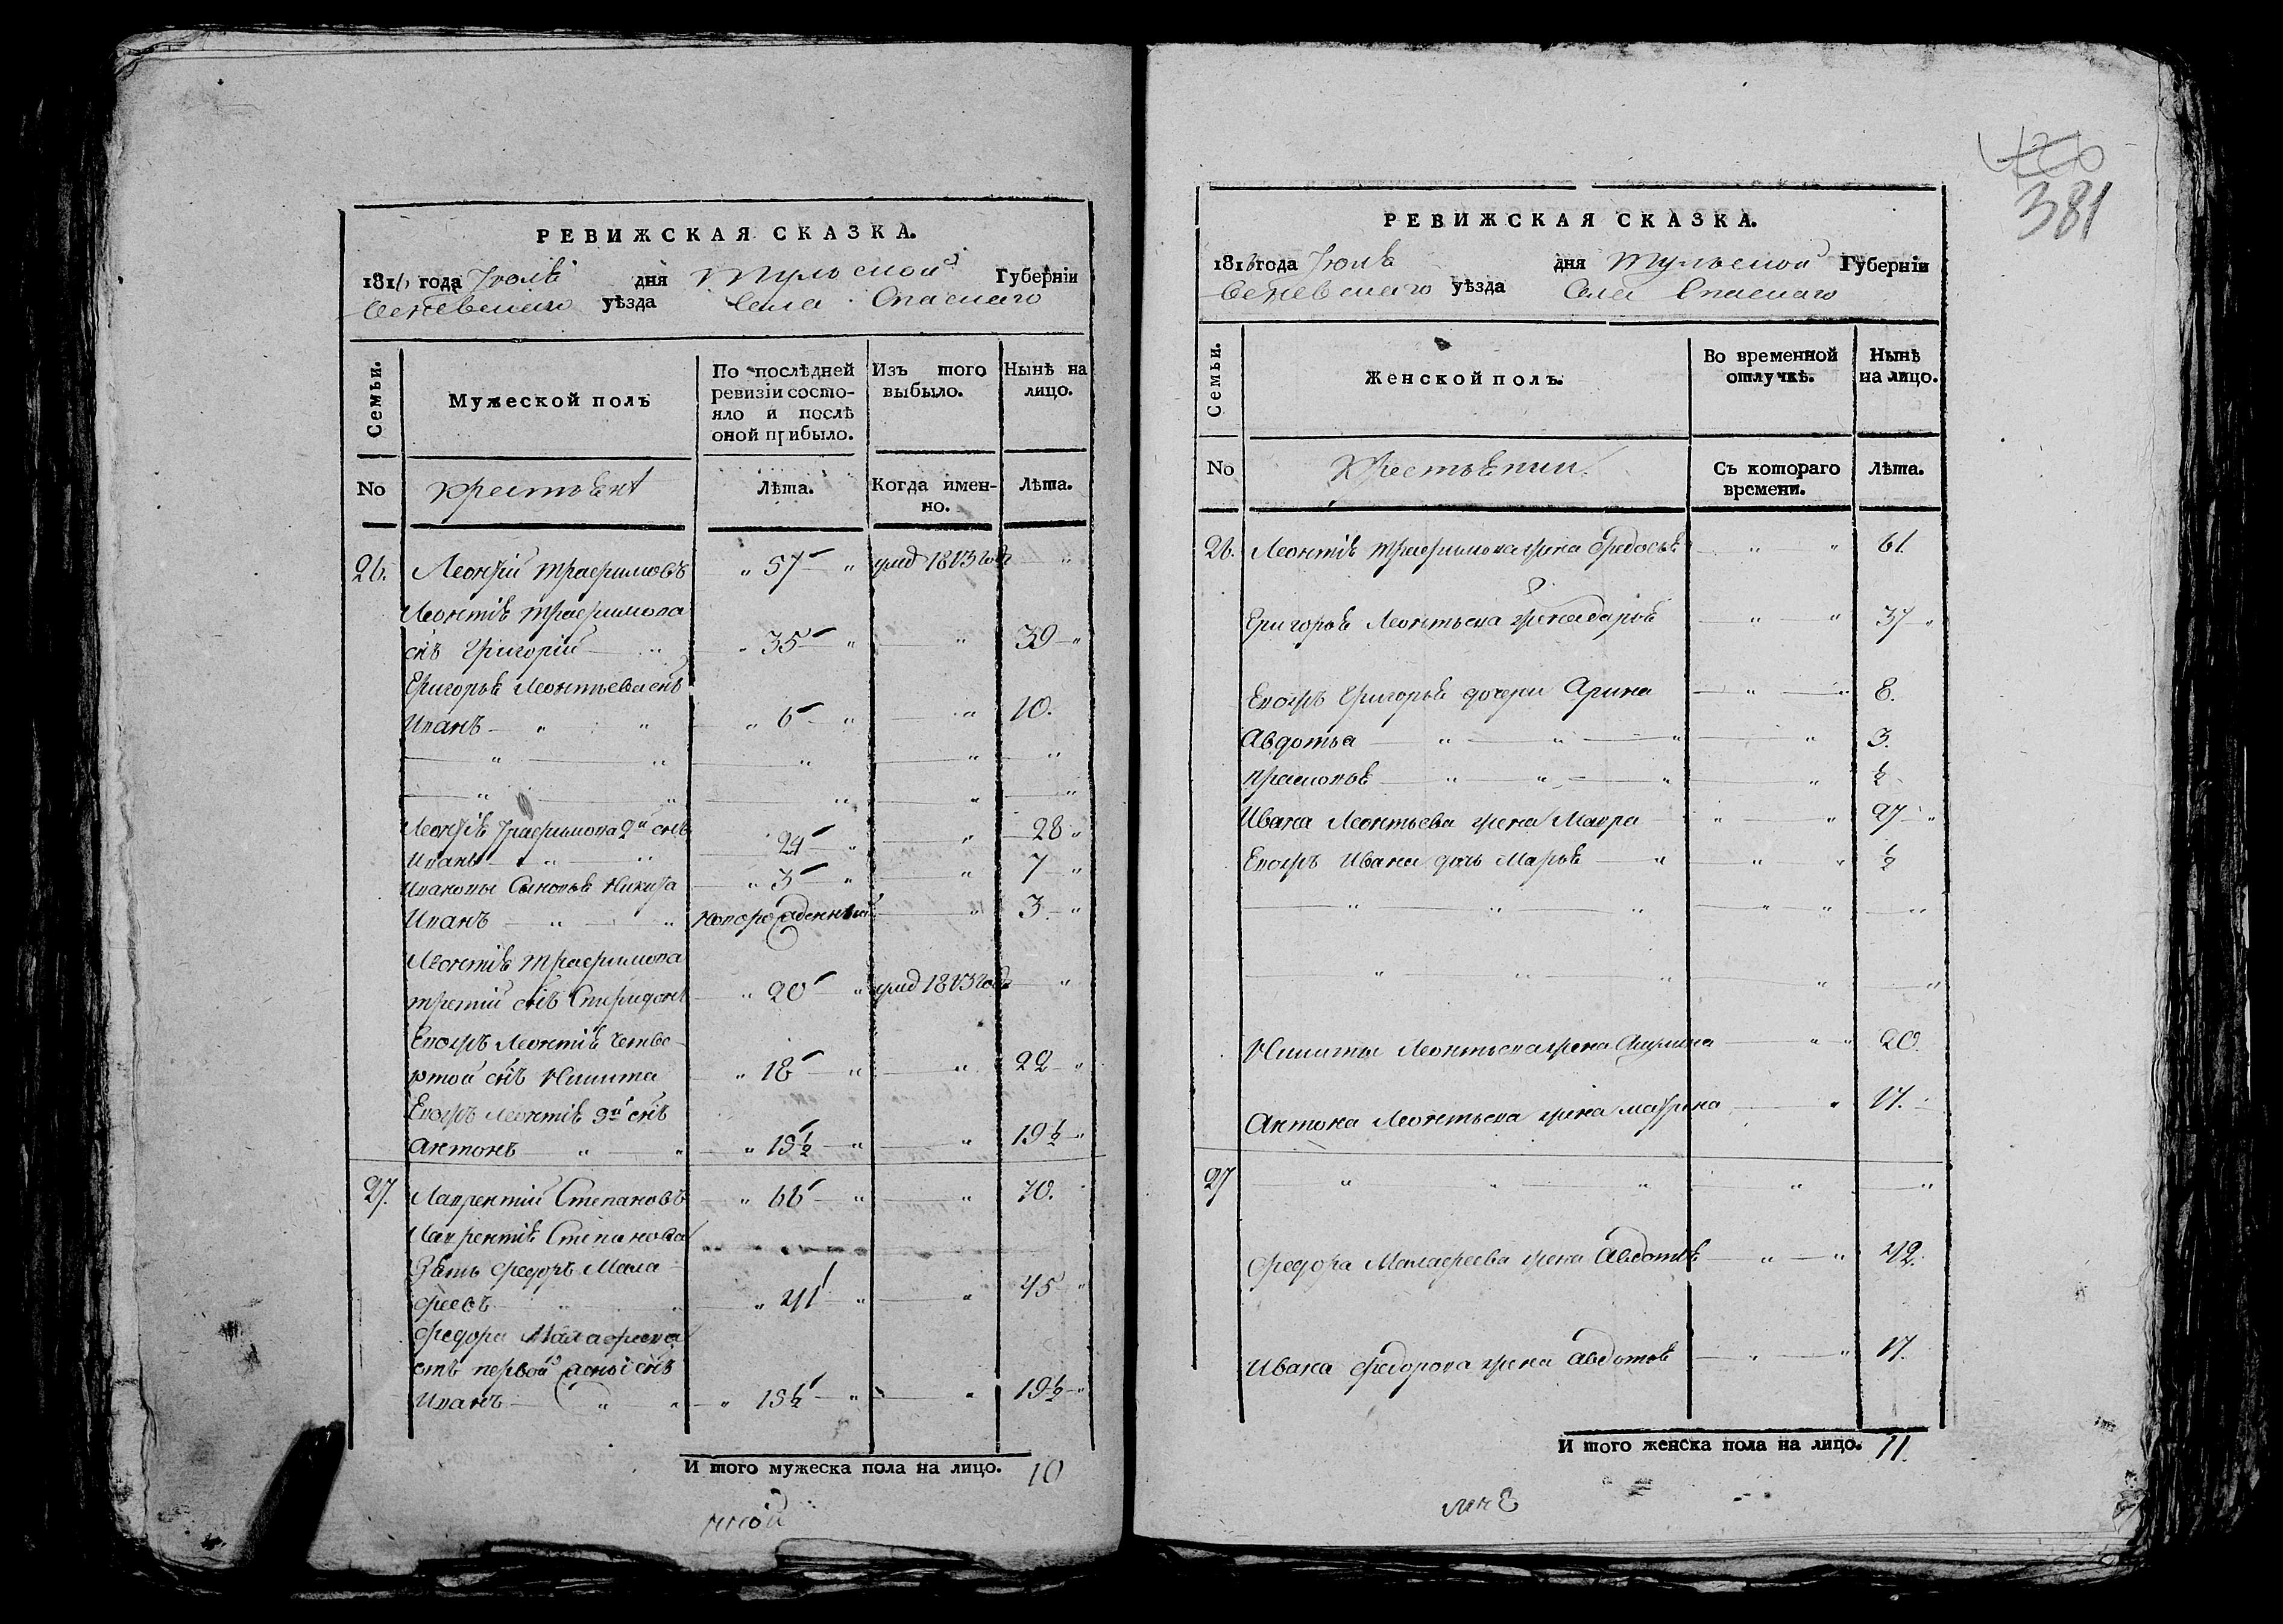 РЕВИЖСКАЯ СКАЗКА.
1816 года Июля дня Тульской Губерніи
Веневскаго уѣзда Села Спаскаго
Семьи.
Мужеской полъ
По послѣдней ревизіи состояло и послѣ оной прибыло.
Изъ того выбыло.
Нынѣ на лицо.
No
крестьянѣ
Лѣта.
Когда именно.
Лѣта.
26. Леонтій Трафимовъ " 57 " умер 1813 года "
Леонтія Трафимова
снъ Григорій " 35 " " 39 "
Григорья Леонтьева снъ
Иванъ " " " 6 " " 10.
" " " " "
" " " " "
Леонтія Трафимова 2й снъ
Иванъ " " 24 " " 28 "
Ивановы Сыновья Никита " 3 " " 7 "
Иванъ " " новорожденный " 3 "
Леонтія Трафимова
третій снъ Спиридонъ " 20 " умер 1813 года "
Евожъ Леонтія четве-
ртой снъ Никита " 18 " " 22 "
Евожъ Леонтія 5й снъ
Антонъ " " " 15½ " " 19½ "
27. Лаврентий Степановъ " 66 " " 70.
Лаврентія Степанова
Зять Федоръ Мала-
феевъ " 41 " " 45 "
Федора Малафеева
отъ первой жены снъ
Иванъ " " " 15½ " " 19½ "
И того мужеска пола на лицо. 10
381
РЕВИЖСКАЯ СКАЗКА.
1816 года Июля дня Тульской Губерніи
Веневскаго уѣзда Села Спаскаго
Семьи.
Женской полъ.
Во временной отлучкѣ.
Нынѣ на лицо.
No
Крестьянки
Съ котораго времени.
Лѣта.
26. Леонтія Трафимова жена Федосья " " 61.
Григорья Леонтьева жена дарья " " 37 "
Евожъ Григорья дочери Арина " " 8.
Авдотья " " " " 3.
Прасковья " " " " ½
Ивана Леонтьева жена Мавра " " 27 "
Евожъ Ивана дочь Марья " " " ½
" " " " " "
" " " " "
Никиты Леонтьева жена Акулина " " 20.
Антона Леонтьева жена матрена " 17.
27 " " " " "
Федора Малафеева жена Авдотья " " 42.
Ивана Федорова жена авдотья " " 17.
И того женска пола на лицо. 11.